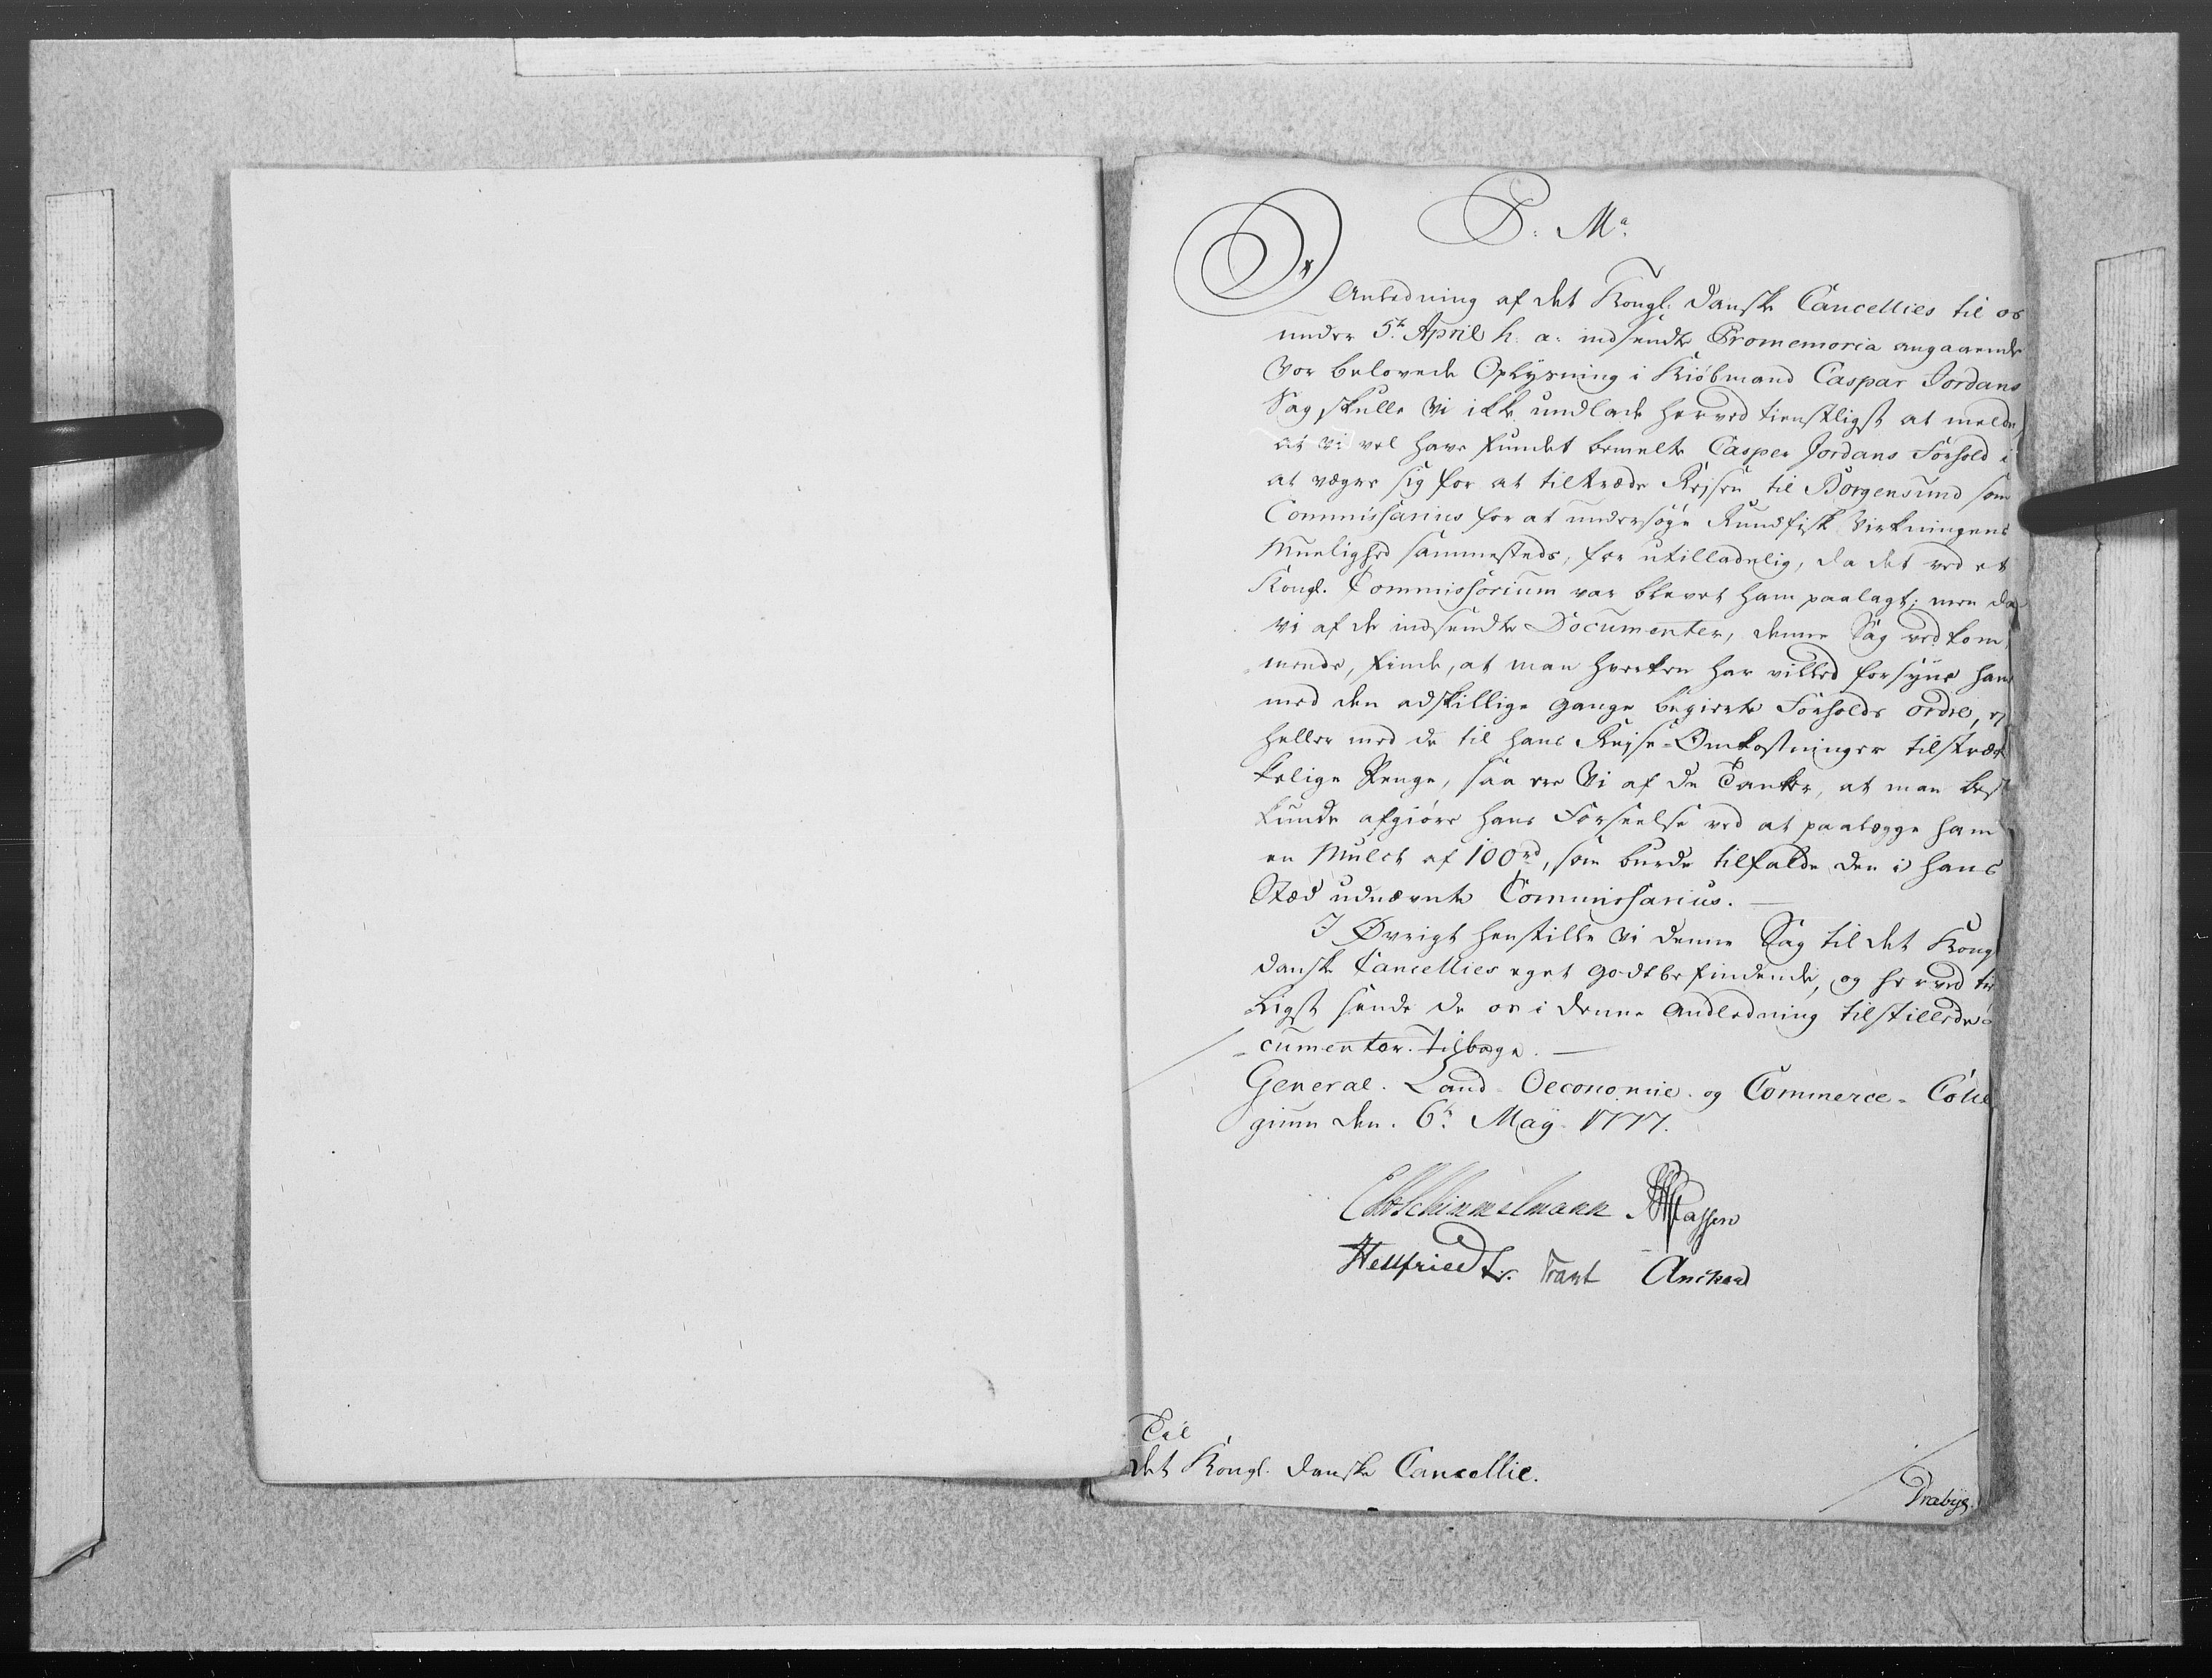 P: Mª:
I
Anledning af det Kongl: Danske Cancellies til os
under 5te April h: a: indsendte Promemoria angaaende
Vor belovede Oplysning i Kiöbmand Caspar Jordans
Sag, skulle Vi ikke undlade herved tienstligst at melde,
at Vi vel have fundet bemelte Casper Jordans Forhold i
at vægre sig for at tiltræde Rejsen til Borgensund som
Commissarius for at undersöge Rundfisk Virkningens
Muelighed sammesteds, for utilladelig, da det ved et
Kongl. Commissorium var blevet ham paalagt; men da
Vi af de indsendte Documenter, denne Sag vedkom¬
mende, finde, at man hverken har villed forsyne ham
med den adskillige gange begierte Forholds ordre, ej
heller med de til hans Rejse-Omkostninger tilstræk
kelige Penge, saa ere Vi af de Tanker, at man best
kunde afgiöre hans Forseelse ved at paalegge ham
en Mulct af 100rd, som burde tilfalde den i hans
Stæd udnævnte Commissarius. —
I Øvrigt henstille Vi denne Sag til det Kongl
Danske Cancellies eget Godtbefindende, og herved ti
ligst sende de os i denne Andledning tilstillede
cumenter tilbage. —
General-Land-Oeconomie- og Commerce-Colle
gium den 6te May 1777.
Schimmelmann
Hellfriedt. Trant Ancher
Til
det Kongl. Danske Cancellie.
Præbye.